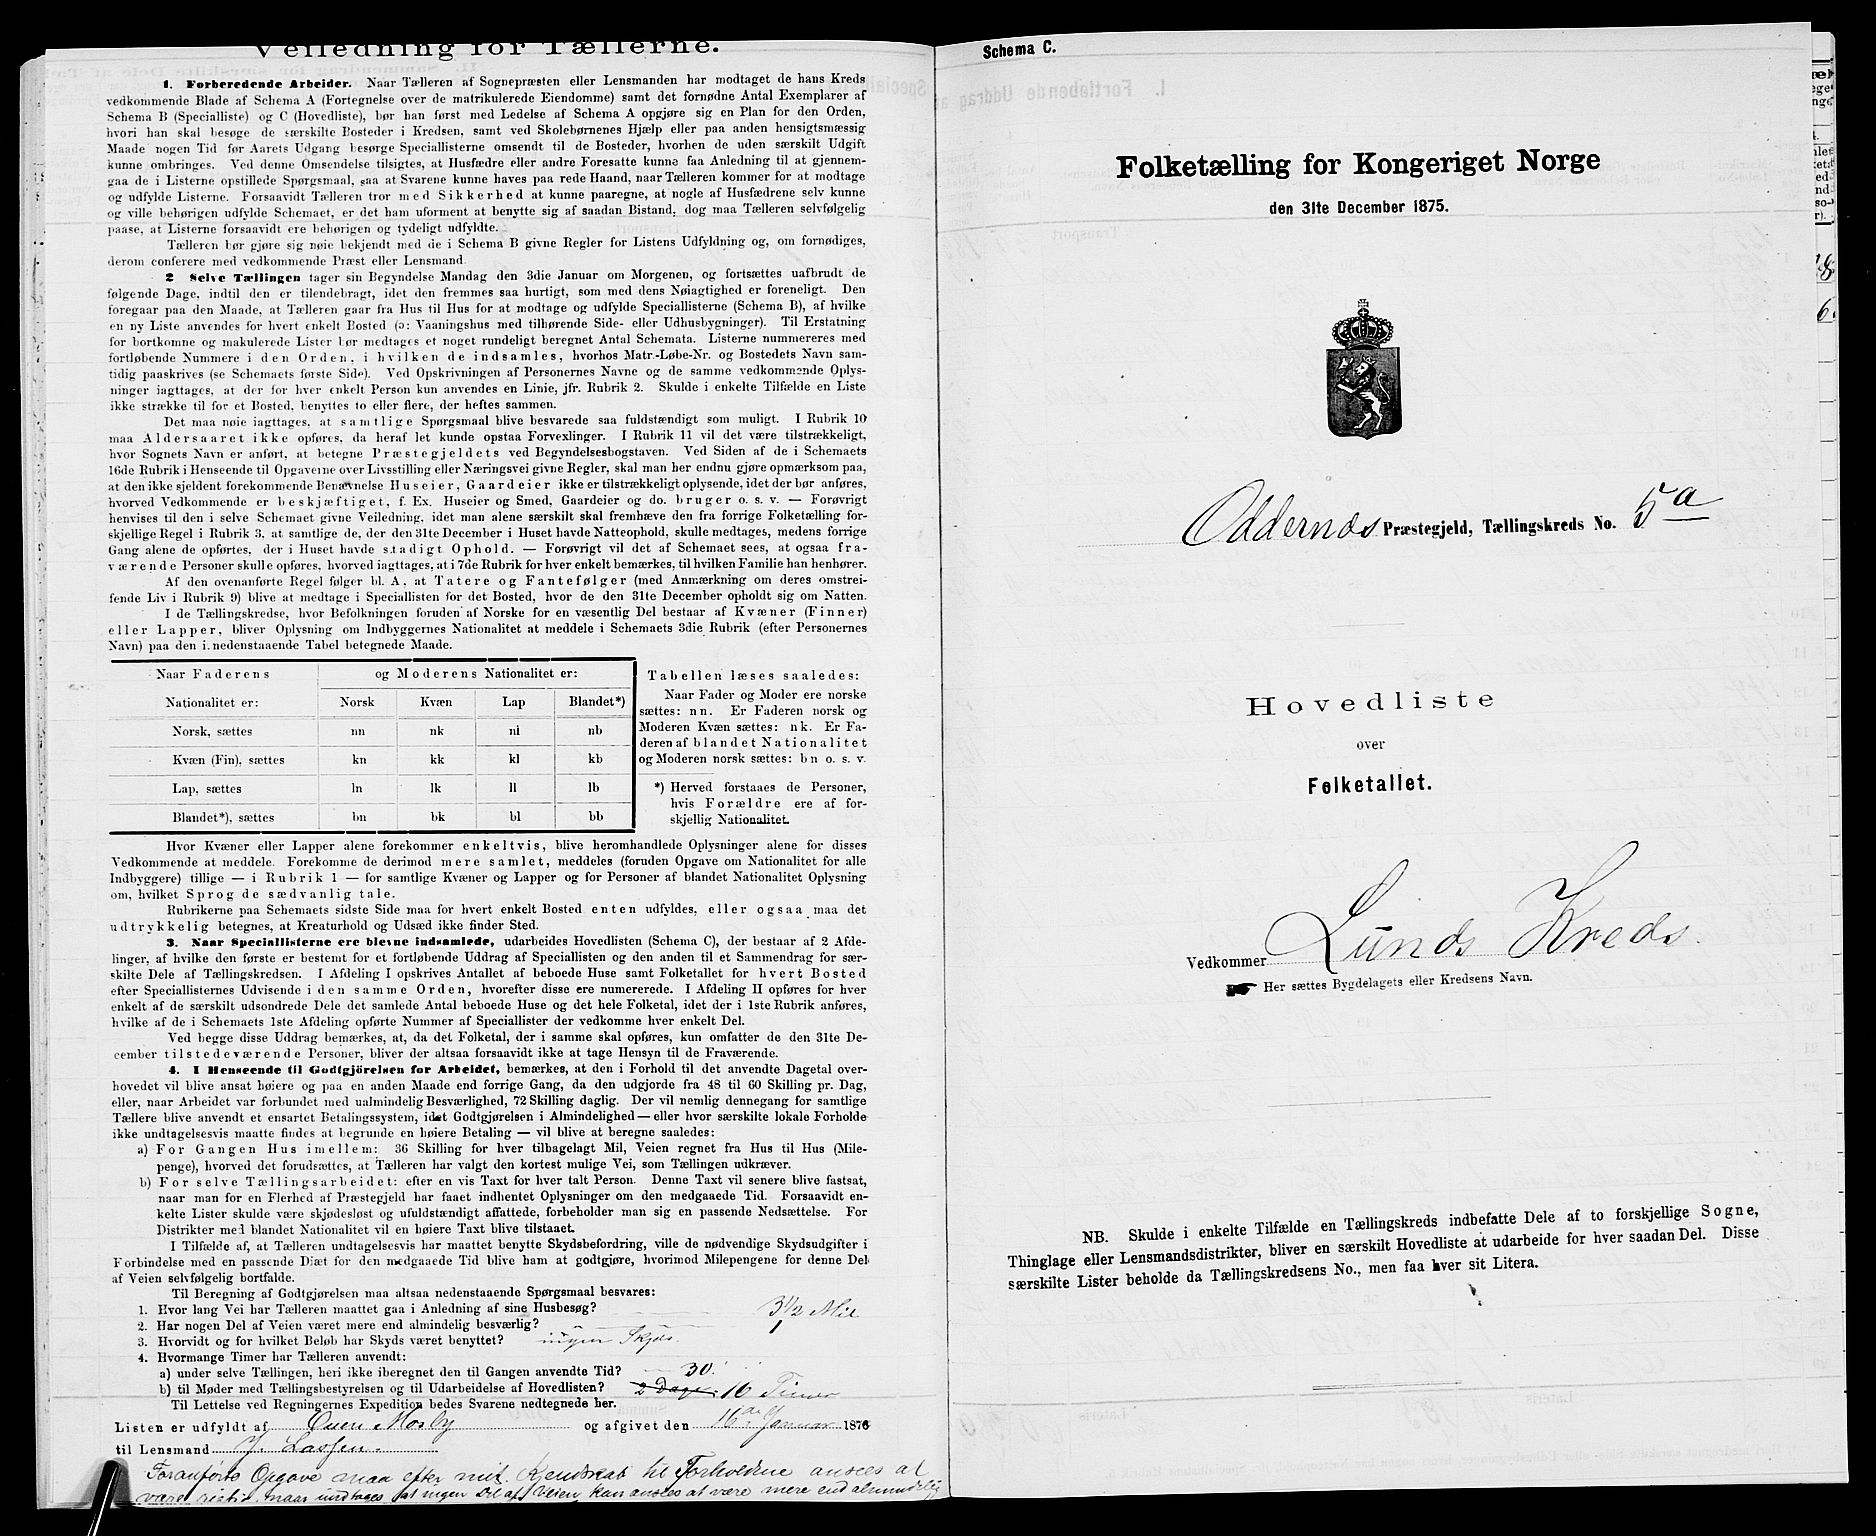 Veiledning for Tællerne.
1. Forberedende Arbeider. Naar Tælleren af Sognepræsten eller Lensmanden har modtaget de hans Kreds
vedkommende Blade af Schema A (Fortegnelse over de matrikulerede Eiendomme) samt det fornødne Antal Exemplarer af
Schema B (Specialliste) og C (Hovedliste), bør han først med Ledelse af Schema A opgjøre sig en Plan for den Orden,
hvori han skal besøge de særskilte Bosteder i Kredsen, samt ved Skolebørnenes Hjælp eller paa anden hensigtsmæssig
Maade nogen Tid før Aarets Udgang besørge Speciallisterne omsendt til de Bosteder, hvorhen de uden særskilt Udgift
kunne ombringes. Ved denne Omsendelse tilsigtes, at Husfædre eller andre Foresatte kunne faa Anledning til at gjennem-
gaa de i Listerne opstillede Spørgsmaal, saa at Svarene kunne haves paa rede Haand, naar Tælleren kommer for at modtage
og udfylde Listerne. Forsaavidt Tælleren tror med Sikkerhed at kunne paaregne, at nogle af Husfædrene selv kunne
og ville behørigen udfylde Schemaet, er det ham uforment at benytte sig af saadan Bistand, dog maa Tælleren selvfølgelig
paase, at Listerne forsaavidt ere behørigen og tydeligt udfyldte.
Tælleren bør gjøre sig nøie bekjendt med de i Schema B givne Regler for Listens Udfyldning og, om fornødiges,
derom conferere med vedkommende Præst eller Lensmand
2 Selve Tællingen tager sin Begyndelse Mandag den 3die Januar om Morgenen, og fortsættes uafbrudt de
følgende Dage, indtil den er tilendebragt, idet den fremmes saa hurtigt, som med dens Nøiagtighed er foreneligt. Den
foregaar paa den Maade, at Tælleren gaar fra Hus til Hus for at modtage og udfylde Speciallisterne (Schema B), af hvilke
en ny Liste anvendes for hvert enkelt Bosted (ɔ: Vaaningshus med tilhørende Side- eller Udhusbygninger). Til Erstatning
for bortkomne og makulerede Lister bør medtages et noget rundeligt beregnet Antal Schemata. Listerne nummereres med
fortløbende Nummere i den Orden, i hvilken de indsamles, hvorhos Matr.-Løbe-Nr. og Bostedets Navn sam-
tidig paaskrives (se Schemaets første Side). Ved Opskrivningen af Personernes Navne og de samme vedkommende Oplys-
ninger iagttages, at der for hver enkelt Person kun anvendes en Linie, jfr. Rubrik 2. Skulde i enkelte Tilfælde en Liste
ikke strække til for et Bosted, benyttes to eller flere, der heftes sammen.
Det maa nøie iagttages, at samtlige Spørgsmaal blive besvarede saa fuldstændigt som muligt. I Rubrik 10
maa Aldersaaret ikke opføres, da heraf let kunde opstaa Forvexlinger. I Rubrik 11 vil det være tilstrækkeligt,
hvor Sognets Navn er anført, at betegne Præstegjeldets ved Begyndelsesbogstaven. Ved Siden af de i Schemaets
16de Rubrik i Henseende til Opgaverne over Livsstilling eller Næringsvei givne Regler, skal man her endnu gjøre opmærksom paa,
at den ikke sjeldent forekommende Benævnelse Huseier, Gaardeier ikke er tilstrækkeligt oplysende, idet der bør anføres,
hvorved Vedkommende er beskjæftiget, f. Ex. Huseier og Smed, Gaardeier og do. bruger o. s. v. — Forøvrigt
henvises til den i selve Schemaet givne Veiledning, idet man alene særskilt skal fremhæve den fra forrige Folketælling for-
skjellige Regel i Rubrik 3, at samtlige de, der den 31te December i Huset havde Natteophold, skulle medtages, medens forrige
Gang alene de opførtes, der i Huset havde stadigt Ophold. — Forøvrigt vil det af Schemaet sees, at ogsaa fra-
værende Personer skulle opføres, hvorved iagttages, at i 7de Rubrik for hver enkelt bemærkes, til hvilken Familie han henhører.
Af den ovenanførte Regel følger bl. A, at Tatere og Fantefølger (med Anmærkning om deres omstrei-
fende Liv i Rubrik 9) blive at medtage i Speciallisten for det Bosted, hvor de den 31te December opholdt sig om Natten.
I de Tællingskredse, hvor Befolkningen foruden af Norske for en væsentlig Del bestaar af Kvæner (Finner)
eller Lapper, bliver Oplysning om Indbyggernes Nationalitet at meddele i Schemaets 3die Rubrik (efter Personernes
Navn) paa den i nedenstaaende Tabel betegnede Maade.
Naar Faderens og Moderens Nationalitet er:
Nationalitet er: Norsk Kvæn Lap Blandet*)
Norsk, sættes nn nk nl nb
Kvæn (Fin), sættes kn kk kl kb
Lap, sættes ln lk ll lb
Blandet*), sættes bn bk bl bb
Tabellen læses saaledes:
Naar Fader og Moder ere norske
sættes: nn. Er Faderen norsk og
Moderen Kvæn sættes: nk. Er Fa-
deren af blandet Nationalitet
og Moderen norsk sættes: bn o. s. v.
*) Herved forstaaes de Personer,
hvis Forældre ere af for-
skjellig Nationalitet.
Hvor Kvæner eller Lapper alene forekommer enkeltvis, blive heromhandlede Oplysninger alene for disses
Vedkommende at meddele. Forekomme de derimod mere samlet, meddeles (foruden Opgave om Nationalitet for alle
Indbyggere) tillige — i Rubrik 1 — for samtlige Kvæner og Lapper og for Personer af blandet Nationalitet Oplysning
om, hvilket Sprog de sædvanlig tale.
Rubrikerne paa Schemaets sidste Side maa for hvert enkelt Bosted enten udfyldes, eller ogsaa maa det
udtrykkelig betegnes, at Kreaturhold og Udsæd ikke finder Sted.
3. Naar Speciallisterne ere blevne indsamlede, udarbeides Hovedlisten (Schema C), der bestaar af 2 Afde-
linger, af hvilke den første er bestemt for et fortløbende Uddrag af Speciallisten og den anden til et Sammendrag for sær-
skilte Dele af Tællingskredsen. I Afdeling I opskrives Antallet af beboede Huse samt Folketallet for hvert Bosted
efter Speciallisternes Udvisende i den samme Orden, hvorefter disse ere numererede. I Afdeling II opføres for hver
enkelt af de særskilt udsondrede Dele det samlede Antal beboede Huse og det hele Folketal, idet der i 1ste Rubrik anføres,
hvilke af de i Schemaets 1ste Afdeling opførte Nummer af Speciallister der vedkomme hver enkelt Del.
Ved begge disse Uddrag bemærkes, at, da det Folketal, der i samme skal opføres, kun omfatter de den 31te De-
cember tilstedeværende Personer, bliver der altsaa forsaavidt ikke at tage Hensyn til de Fraværende.
4. I Henseende til Godtgjörelsen for Arbeidet, bemærkes, at den i Forhold til det anvendte Dagetal over-
hovedet vil blive ansat høiere og paa en anden Maade end forrige Gang, da den udgjorde fra 48 til 60 Skilling pr. Dag,
eller, naar Arbeidet var forbundet med ualmindelig Besværlighed, 72 Skilling daglig. Der vil nemlig dennegang for samtlige
Tællere blive anvendt et ensartet Betalingssystem, idet Godtgjørelsen i Almindelighed — eller hvor særskilte lokale Forholde
ikke undtagelsesvis maatte findes at begrunde en høiere Betaling — vil blive at beregne saaledes:
a) For Gangen Hus imellem: 36 Skilling for hver tilbagelagt Mil, Veien regnet fra Hus til Hus (Mile-
penge), hvorved det forudsættes, at Tælleren har valgt den kortest mulige Vei, som Tællingen udkræver.
b) For selve Tællingsarbeidet: efter en vis Taxt for hver talt Person. Denne Taxt vil senere blive fastsat,
naar man for en Flerhed af Præstegjeld har faaet indhentet Oplysninger om den medgaaede Tid. Forsaavidt en-
kelte Lister skulde være skjødesløst og ufuldstændigt affattede, forbeholder man sig en passende Nedsættelse. For
Distrikter med blandet Nationalitet vil en høiere Taxt blive tilstaaet.
I Tilfælde af, at Tælleren undtagelsesvis har maattet benytte Skydsbefordring, ville de nødvendige Skydsudgifter i
Forbindelse med en passende Diæt for den medgaaede Tid blive ham at godtgjøre, hvorimod Milepengene for denne Del
af Veien selvfølgelig bortfalde.
Til Beregning af Godtgjørelsen maa altsaa nedenstaaende Spørgsmaal besvares:
1. Hvor lang Vei har Tælleren maattet gaa i Anledning af sine Husbesøg? 3 1/2 Mil
2. Har nogen Del af Veien været mere end almindelig besværlig?
3. Hvorvidt og for hvilket Beløb har Skyds været benyttet? ingen Skyds.
4. Hvormange Timer har Tælleren anvendt:
a) under selve Tællingen, heri ikke iberegnet den til Gangen anvendte Tid? 30.
b) til Møder med Tællingsbestyrelsen og til Udarbeidelse af Hovedlisten? 2 Dage 16 Timer
Til Lettelse ved Regningernes Expedition bedes Svarene nedtegnede her.
Listen er udfyldt af Ouen Mosby og afgivet den 16de Januar 1876
til Lensmand J. Lassen.
Foranførte Opgave maa efter mit Kjendskab til Forholdene ansees at
være rigtig, naar undtages at ingen Del af Veien kan ansees at være mere end almindelig
Schema C.
Folketælling for Kongeriget Norge
den 31te December 1875.
Oddernæs Præstegjeld, Tællingskreds No. 5a
Hovedliste
over
Folketallet.
Vedkommer Lunds Kreds.
Her sættes Bygdelagets eller Kredsens Navn.
NB. Skulde i enkelte Tilfælde en Tællingskreds indbefatte Dele af to forskjellige Sogne,
Thinglage eller Lensmandsdistrikter, bliver en særskilt Hovedliste at udarbeide for hver saadan Del. Disse
særskilte Lister beholde da Tællingskredsens No., men faa hver sit Litera.